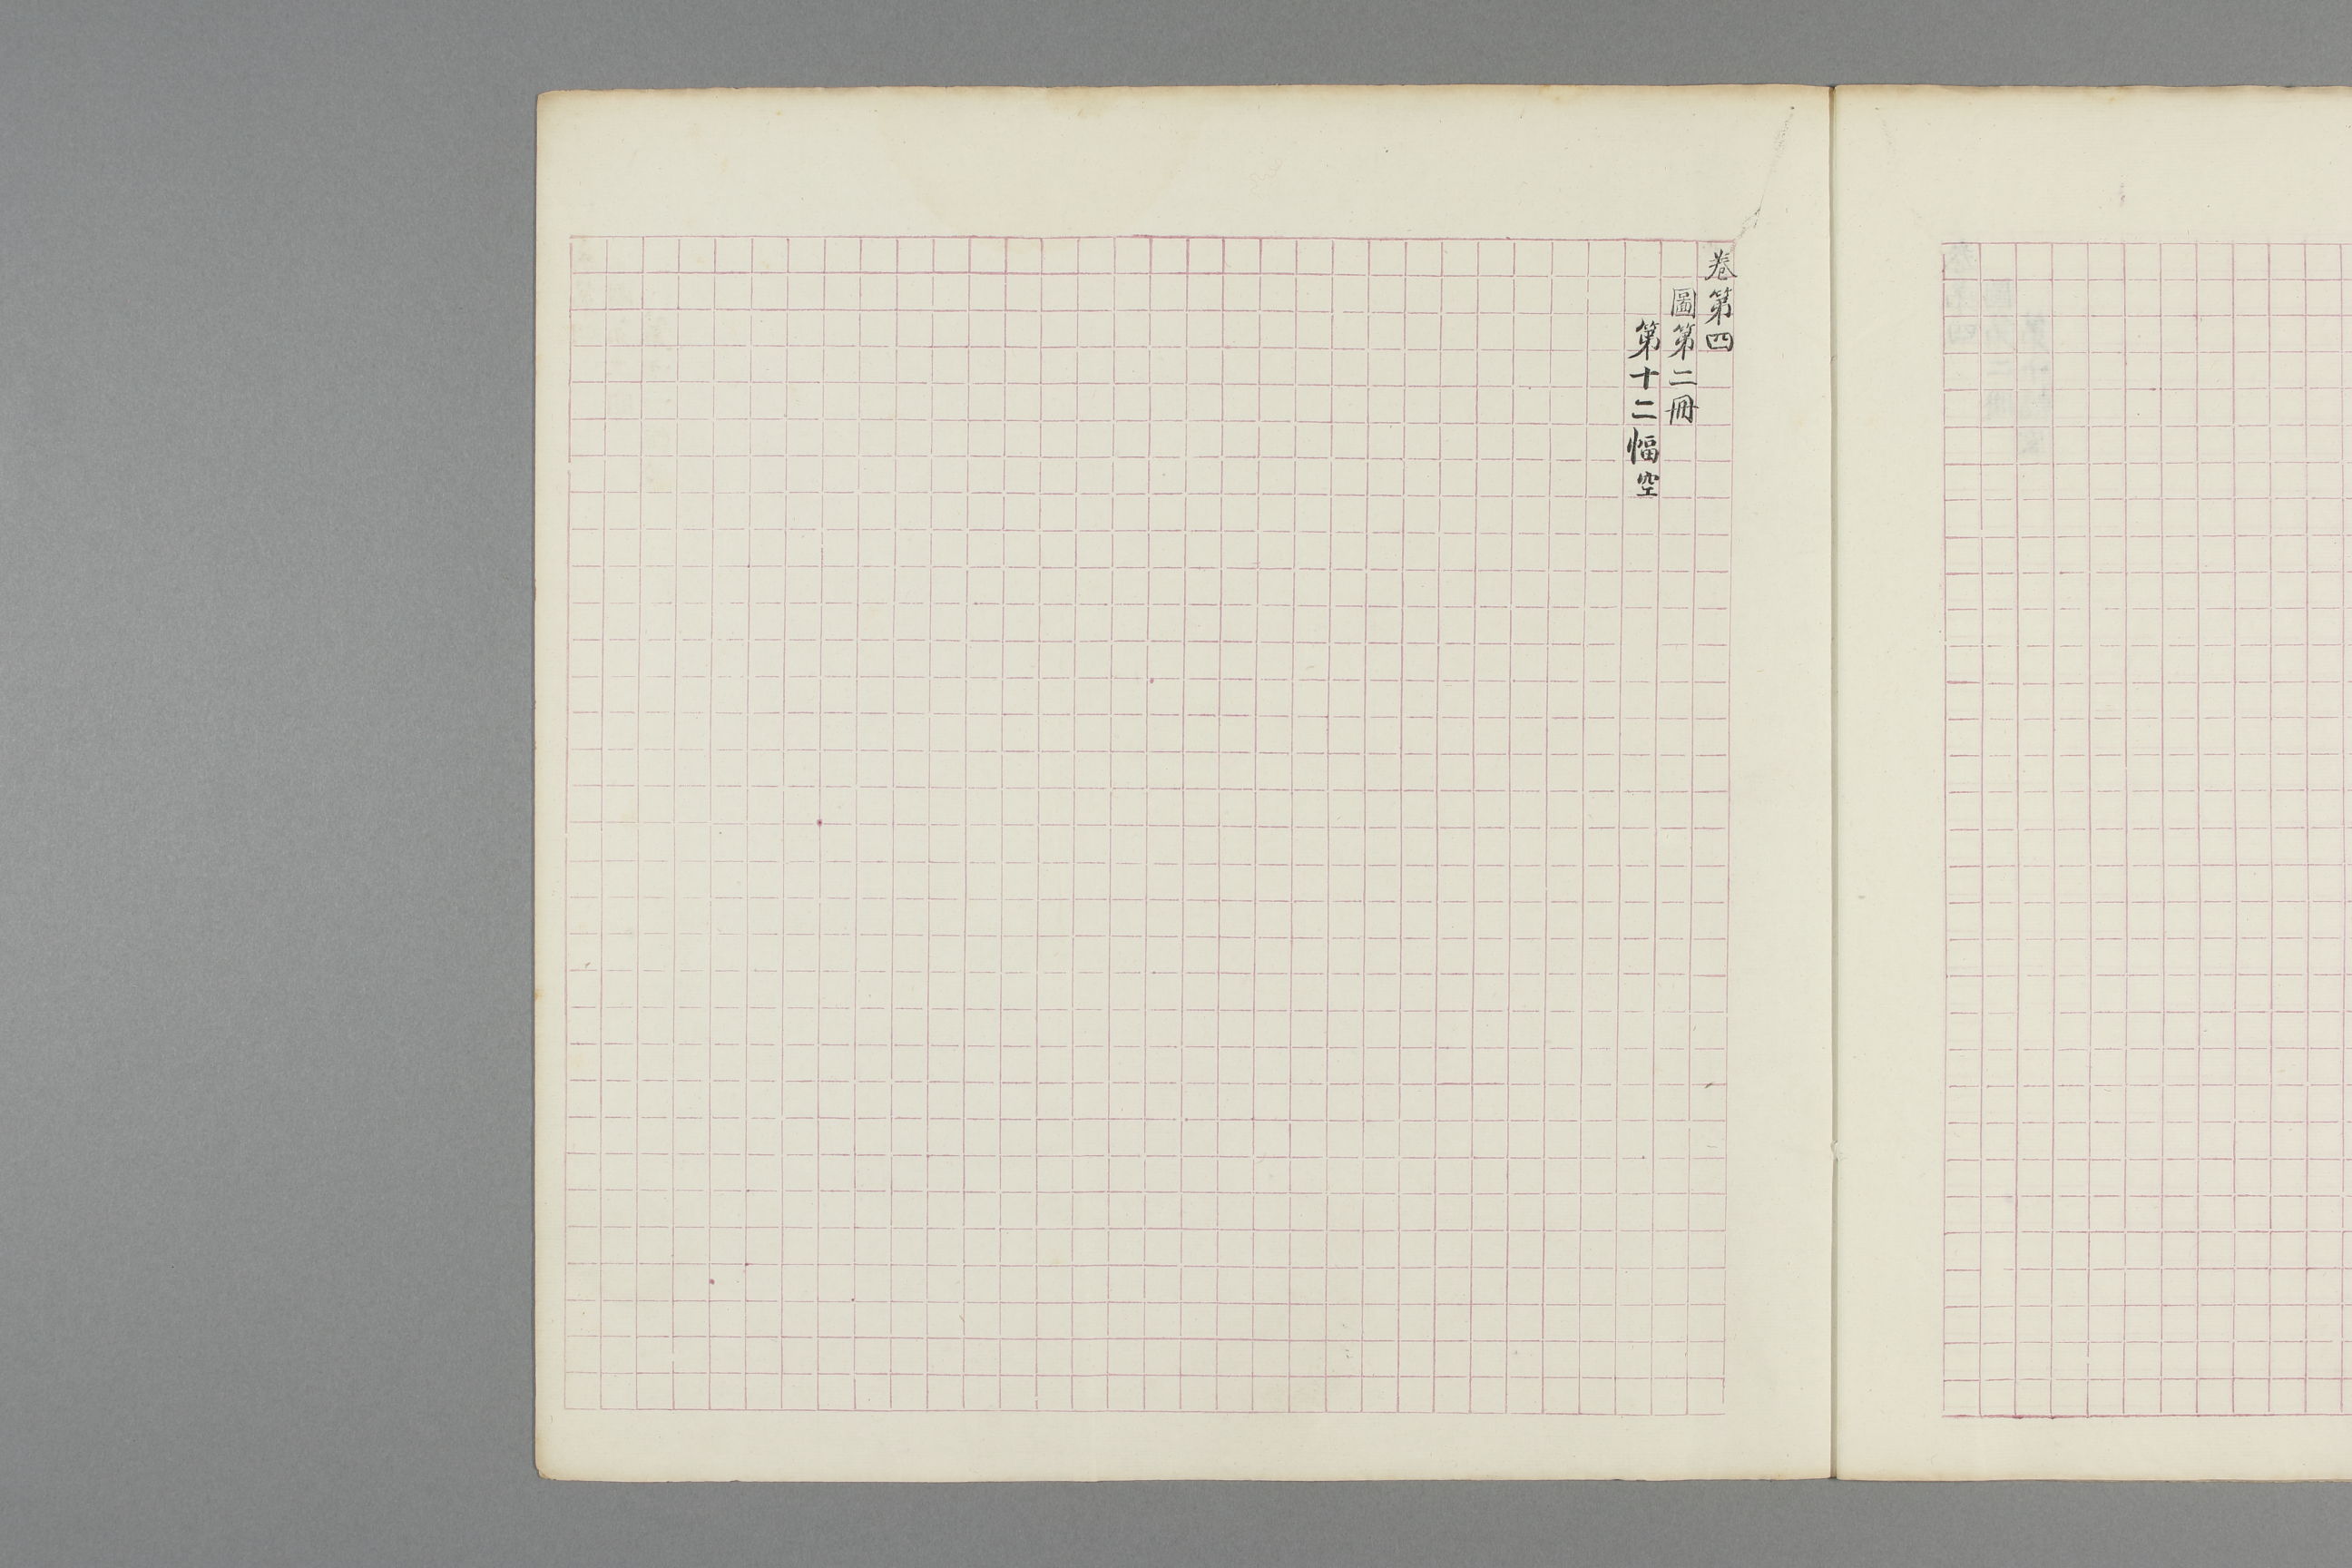 卷第四
圖第二冊
第十二幅空